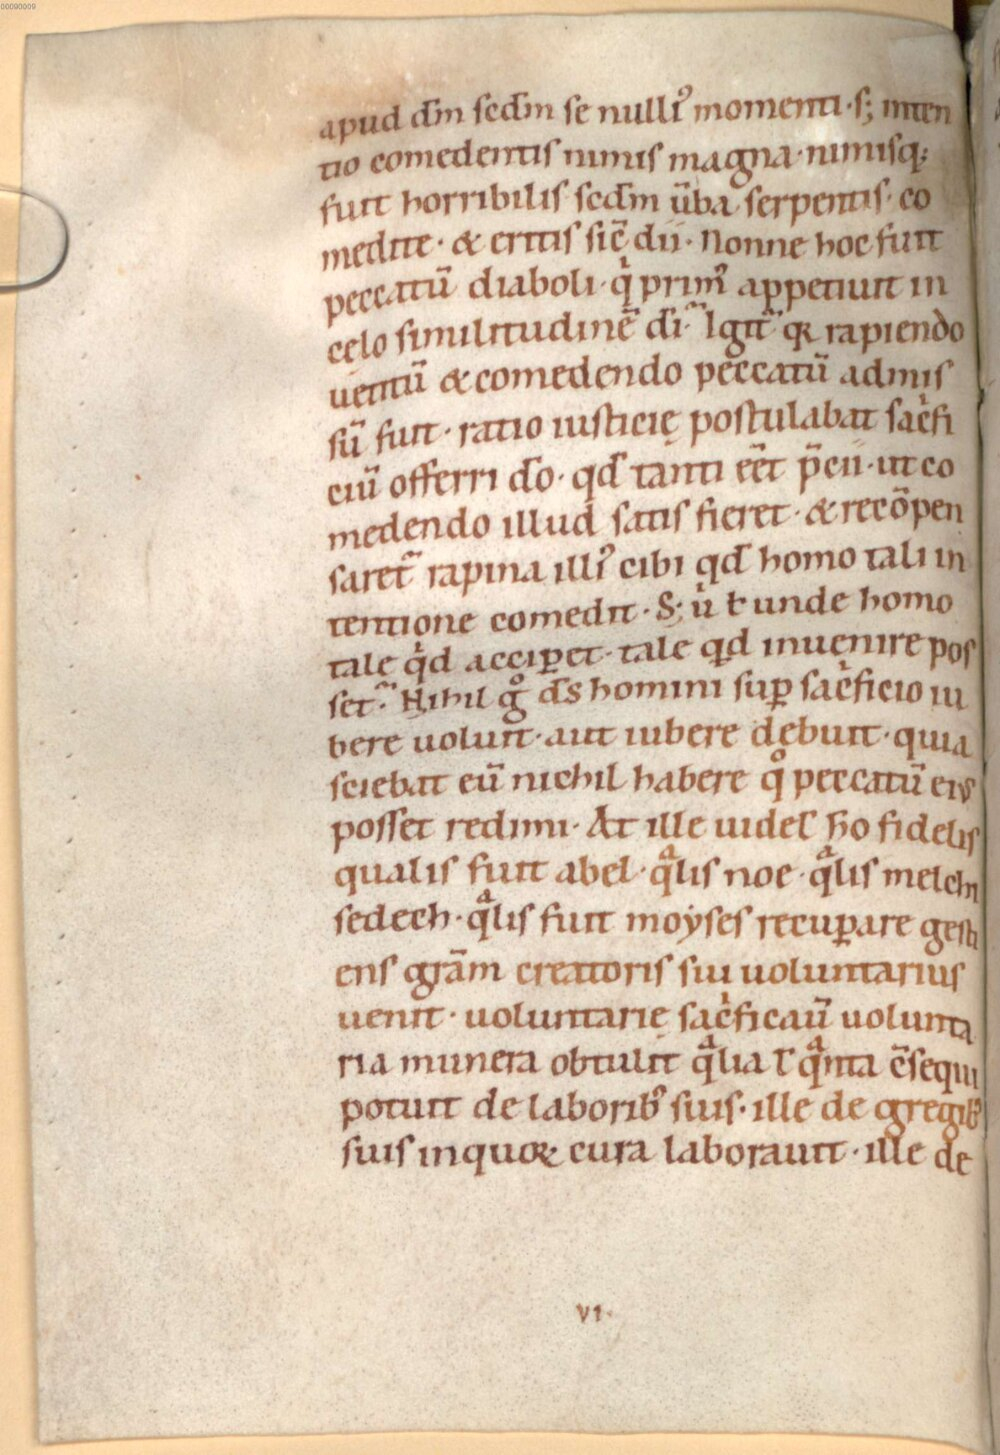 00090009
apud dm̄ scdm̄ se nulli᷒ momenti · s; inten
tio comedentis nimis magna · nimisq;
fuit horribilis scdm̄ ūba serpentis · co
medite · & eritis sic̄ dii · Nonne hoc fuit
peccatū diaboli · qͥ prim᷒ appetiuit in
celo similitudinē dī · Igit᷑ qꝛ rapiendo
uetitū & comedendo peccatū admis
sū fuit · ratio iusticię postulabat sac̍fi
ciū offerri d̄o · qd̄ tanti eēt p̄cii · ut co
medendo illud satis fieret · & recōpen
saret᷑ rapina illi᷒ cibi qd̄ homo tali in
tentione comedit · S; uͥ ł unde homo
tale qͥd acciꝑet · tale qͥd inuenire pos
set · Nihil gͦ d̄s homini suꝑ sac̍ficio iu
bere uoluit · aut iubere debuit · quia
sciebat eū nichil habere qͦ peccatū ei᷒
posset redimi · At ille uidel̄ h̄o fidelis
qualis fuit abel · qͣlis noe · qͣlis melchi
sedech · qͣlis fuit moyses recuꝑare gesti
ens grām creatoris sui uoluntarius
uenit · uoluntarię sac̍ficauī uolunta
ria munera obtulit qͣlia ł qͣnta c̄sequi
potuit de laborib᷒ suis · ille de gregib᷒
suis inquoꝝ cura laborauit · ille de
VI ·